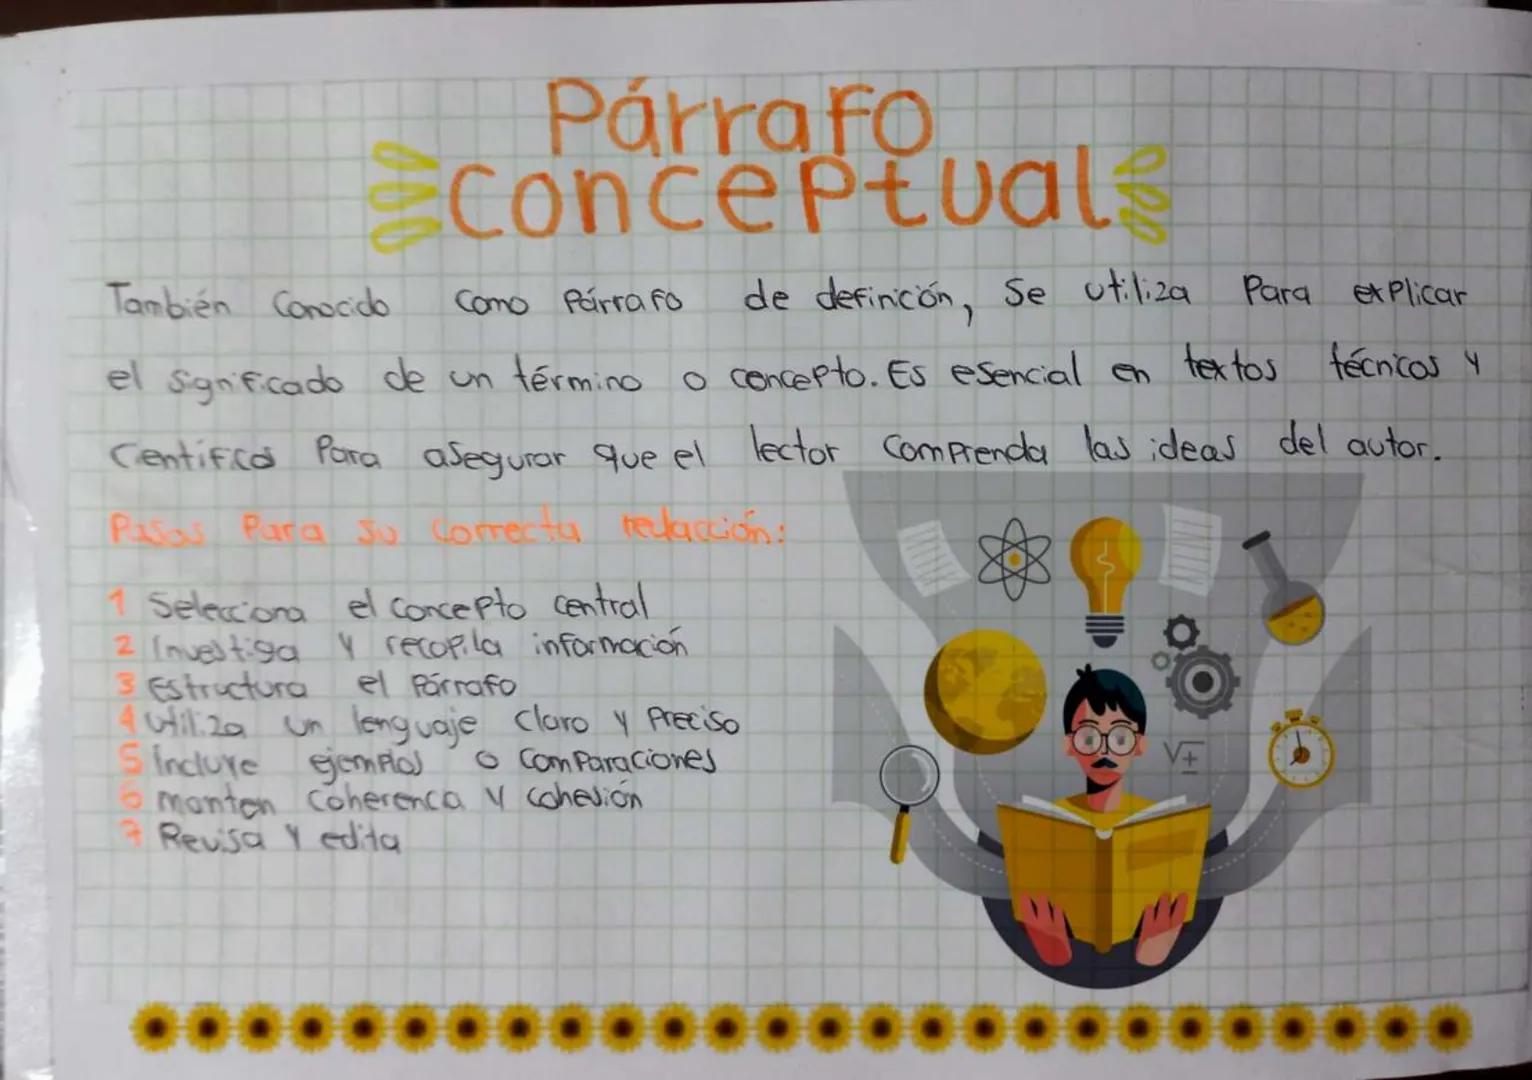 Párrafo
Conceptual
También Conocido como Párrafo de definición, se utiliza Para explicar
el significado de un término o concepto. Es esencial en textos técnicos y
Científicos Para asegurar que el lector comprenda las ideas del autor.
Pasos Para su correcta redacción:
1 Selecciona el concepto central
2 Investiga y recopila información
3 Estructura el Párrafo
4 Utiliza un lenguaje claro y Preciso
5 Incluye ejemplos o comparaciones
6 manten coherenca y cohesión
7 Revisa y edita
√±